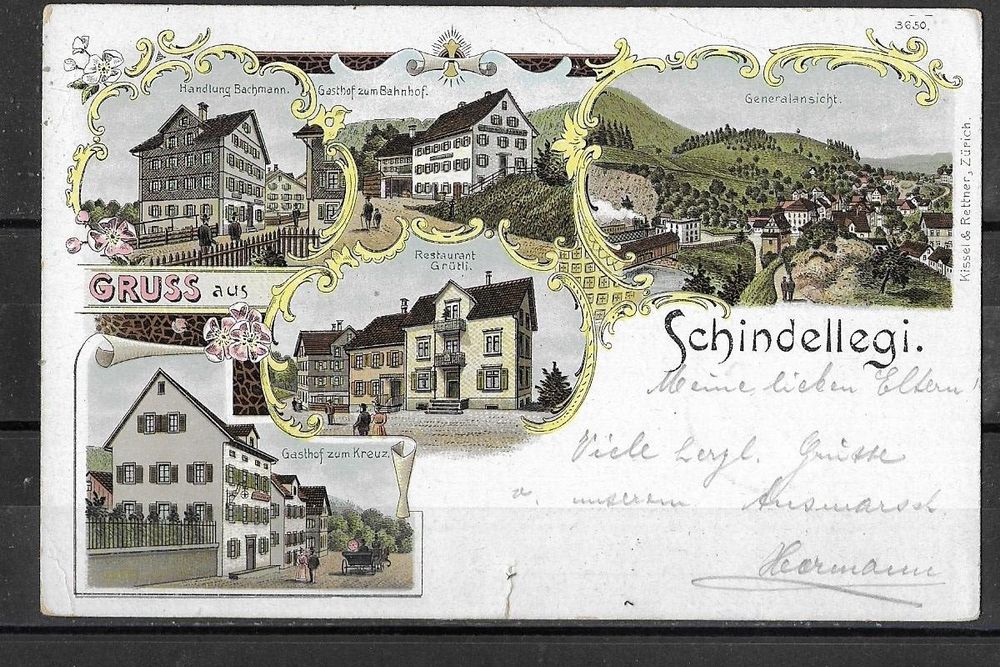 3650.
Handlung Bachmann.
Gasthof zum Bahnhof.
Generalansicht.
Kissel & Rettner, Zürich.
Restaurant
Grütli.
GRUSS aus
Schindellegi.
Gasthof zum Kreuz.
Meine lieben Eltern!
Viele herzl. Grüsse
v. unserem Ausmarsch
Hermann